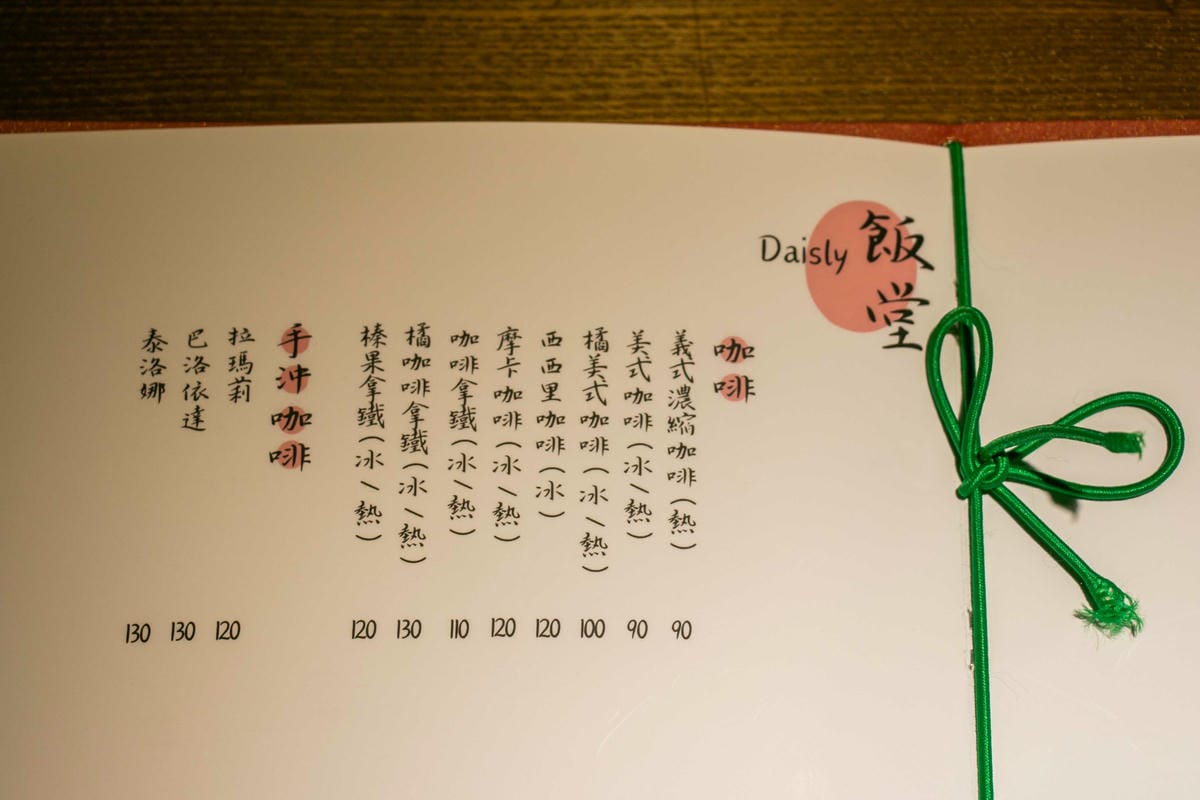 Daisly 飯堂
咖啡
義式濃縮咖啡(熱) 90
美式咖啡(冰/熱) 90
橘美式咖啡(冰/熱) 100
西西里咖啡(冰) 120
摩卡咖啡(冰/熱) 120
咖啡拿鐵(冰/熱) 110
橘咖啡拿鐵(冰/熱) 130
榛果拿鐵(冰/熱) 120
手沖咖啡
拉瑪莉 120
巴洛依達 130
泰洛娜 130